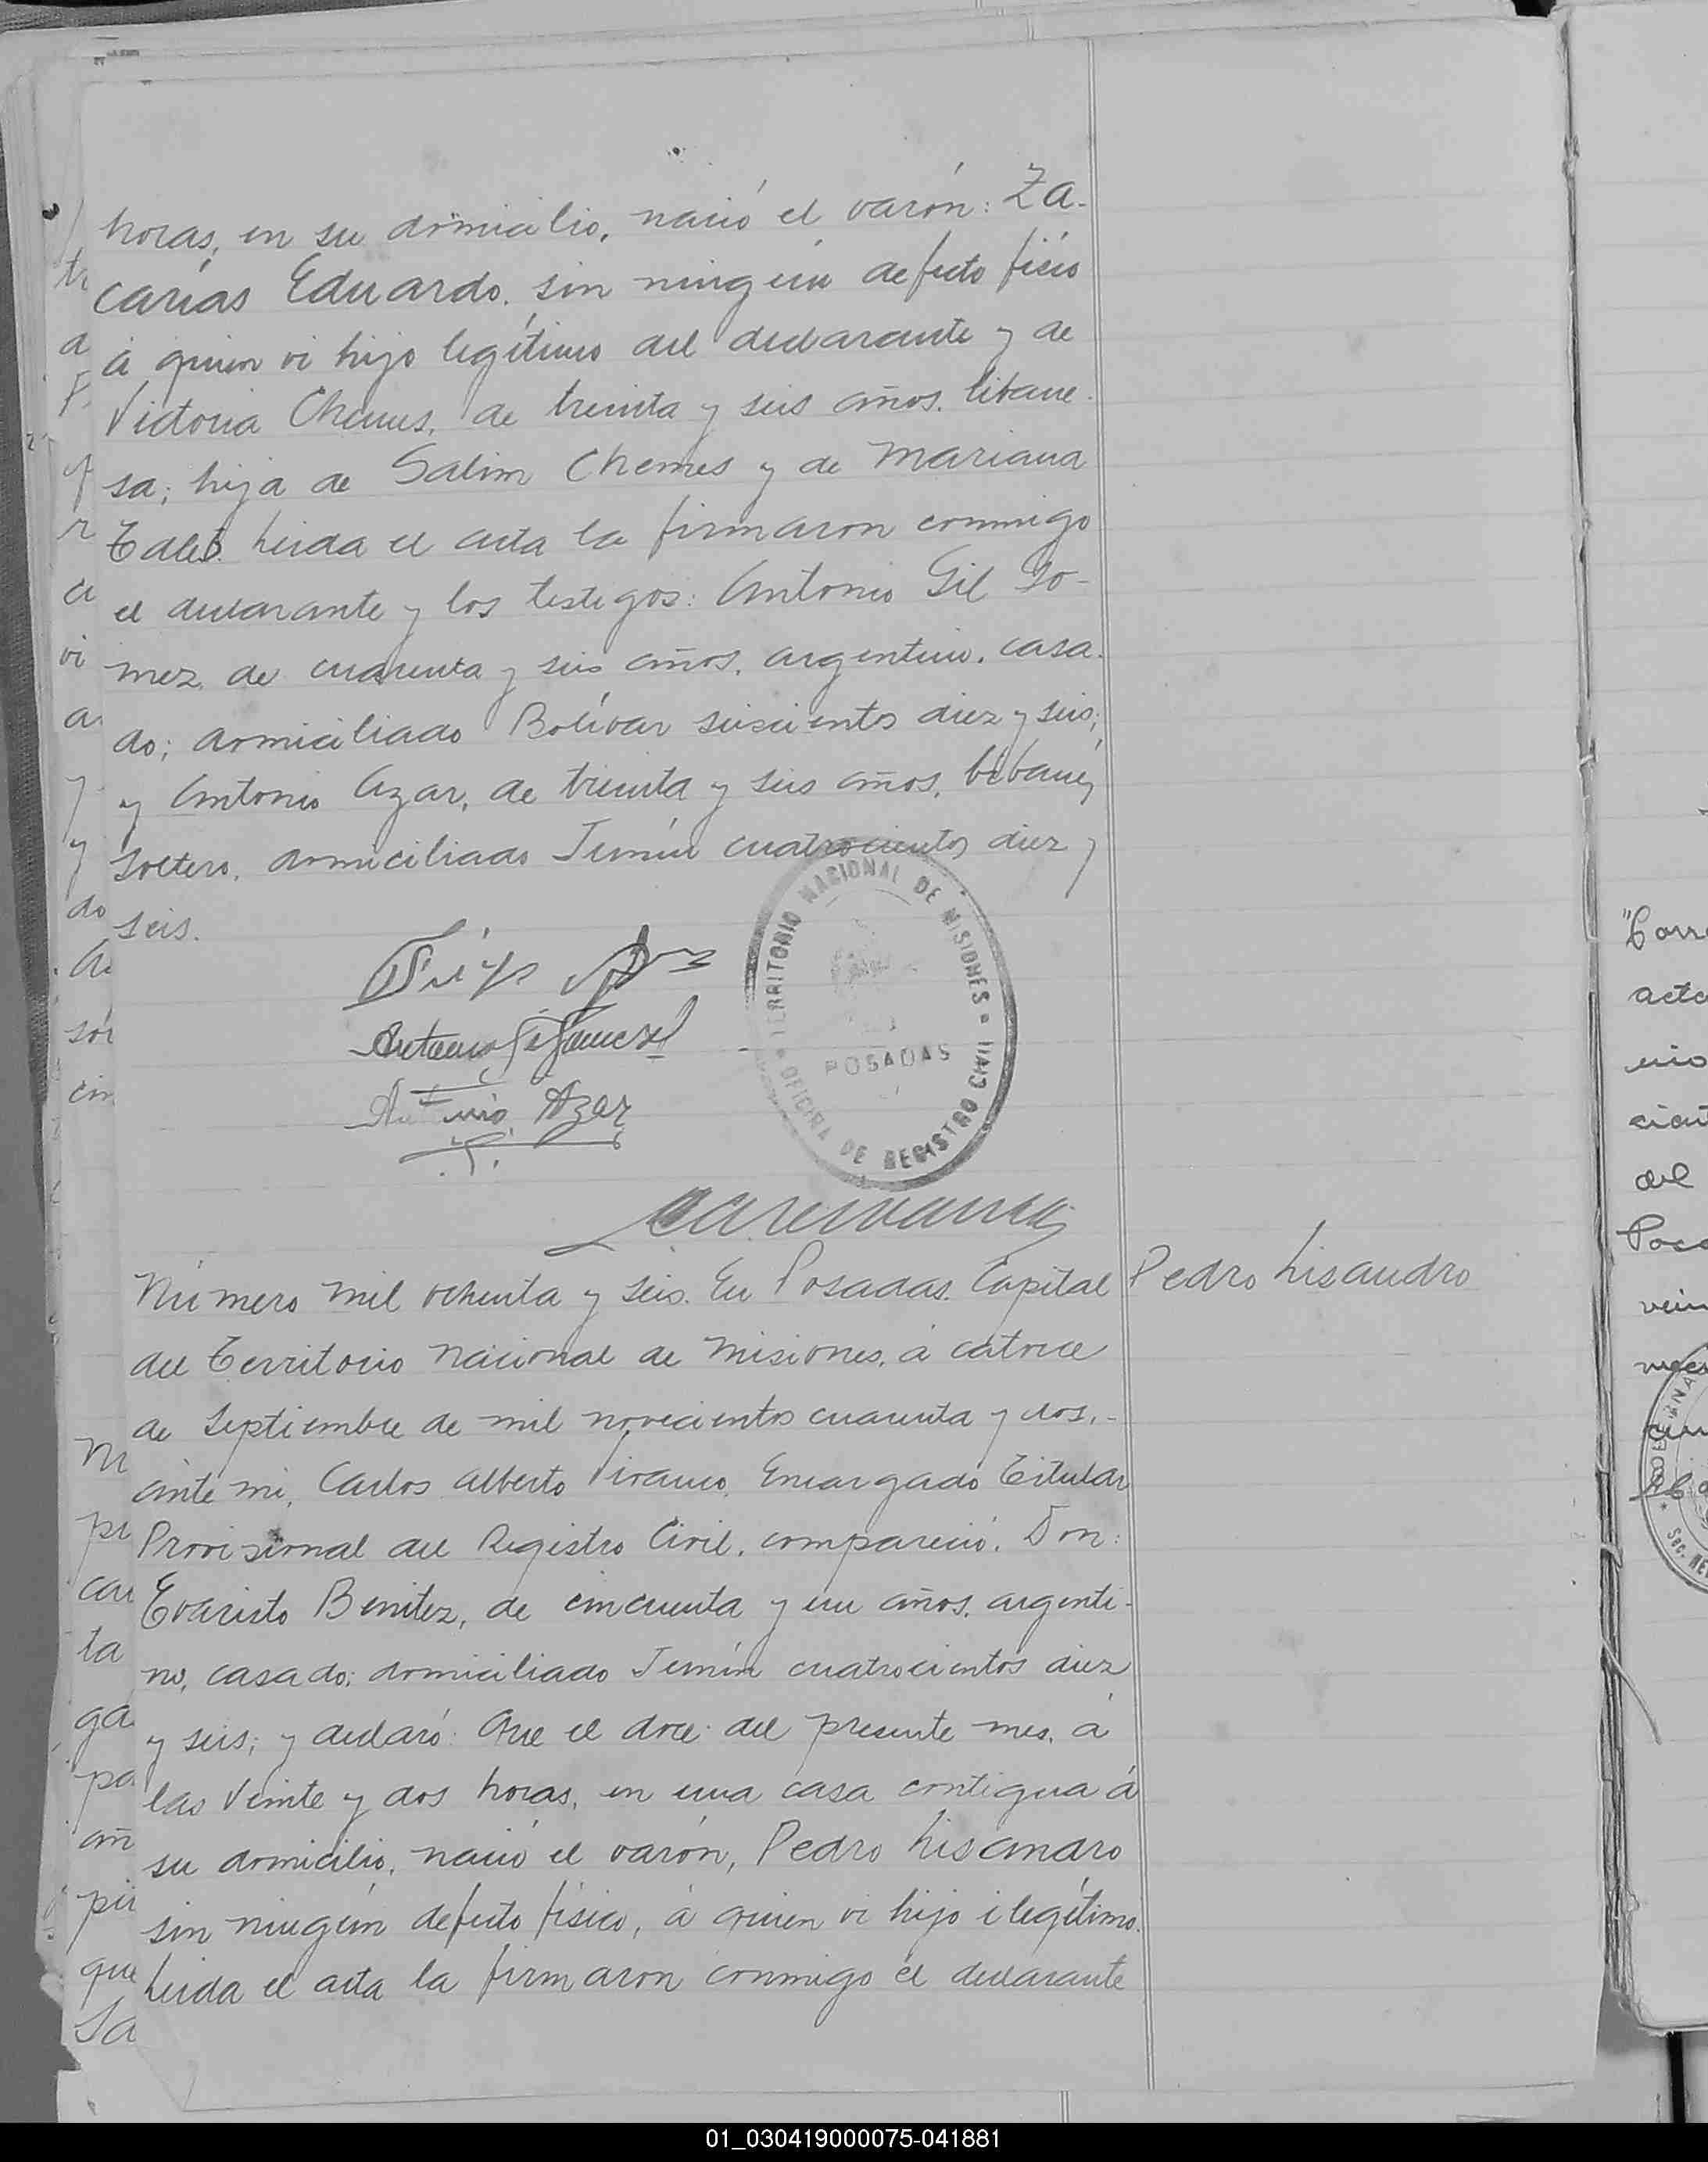 horas, en su domicilio, nació el varón: Za-
carías Eduardo, sin ningún defecto físico
á quien vi hijo legítimo del declarante y de
Victoria Chemes, de treinta y seis años, libane-
sa; hija de Salim Chemes y de Mariana
Taleb. Leida el acta la firmaron conmigo
el declarante y los testigos: Antonio Gil Go-
mez, de cuarenta y seis años, argentino, casa-
do; domiciliado Bolívar seiscientos diez y seis;
y Antonio Azar, de treinta y seis años, libanés,
soltero, domiciliado Junín cuatrocientos diez y
seis.
Antonio Azar
TERRITORIO NACIONAL DE MISIONES
OFICINA DE REGISTRO CIVIL
POSADAS
Número mil ochenta y seis. En Posadas, Capital
Pedro Lisandro
del Territorio Nacional de Misiones, á catorce
de Septiembre de mil novecientos cuarenta y dos,-
ante mi, Carlos Alberto Encargado Titular
Provisional del Registro Civil, compareció, Don:
Evaristo Benitez, de cincuenta y un años, argenti-
no, casado; domiciliado Junín cuatrocientos diez
y seis; y declaró: Que el doce del presente mes, á
las veinte y dos horas, en una casa contigua á
su domicilio, nació el varón, Pedro Lisandro
sin ningún defecto físico, á quien vi hijo ilegítimo.
Leida el acta la firmaron conmigo el declarante
01_030419000075-041881